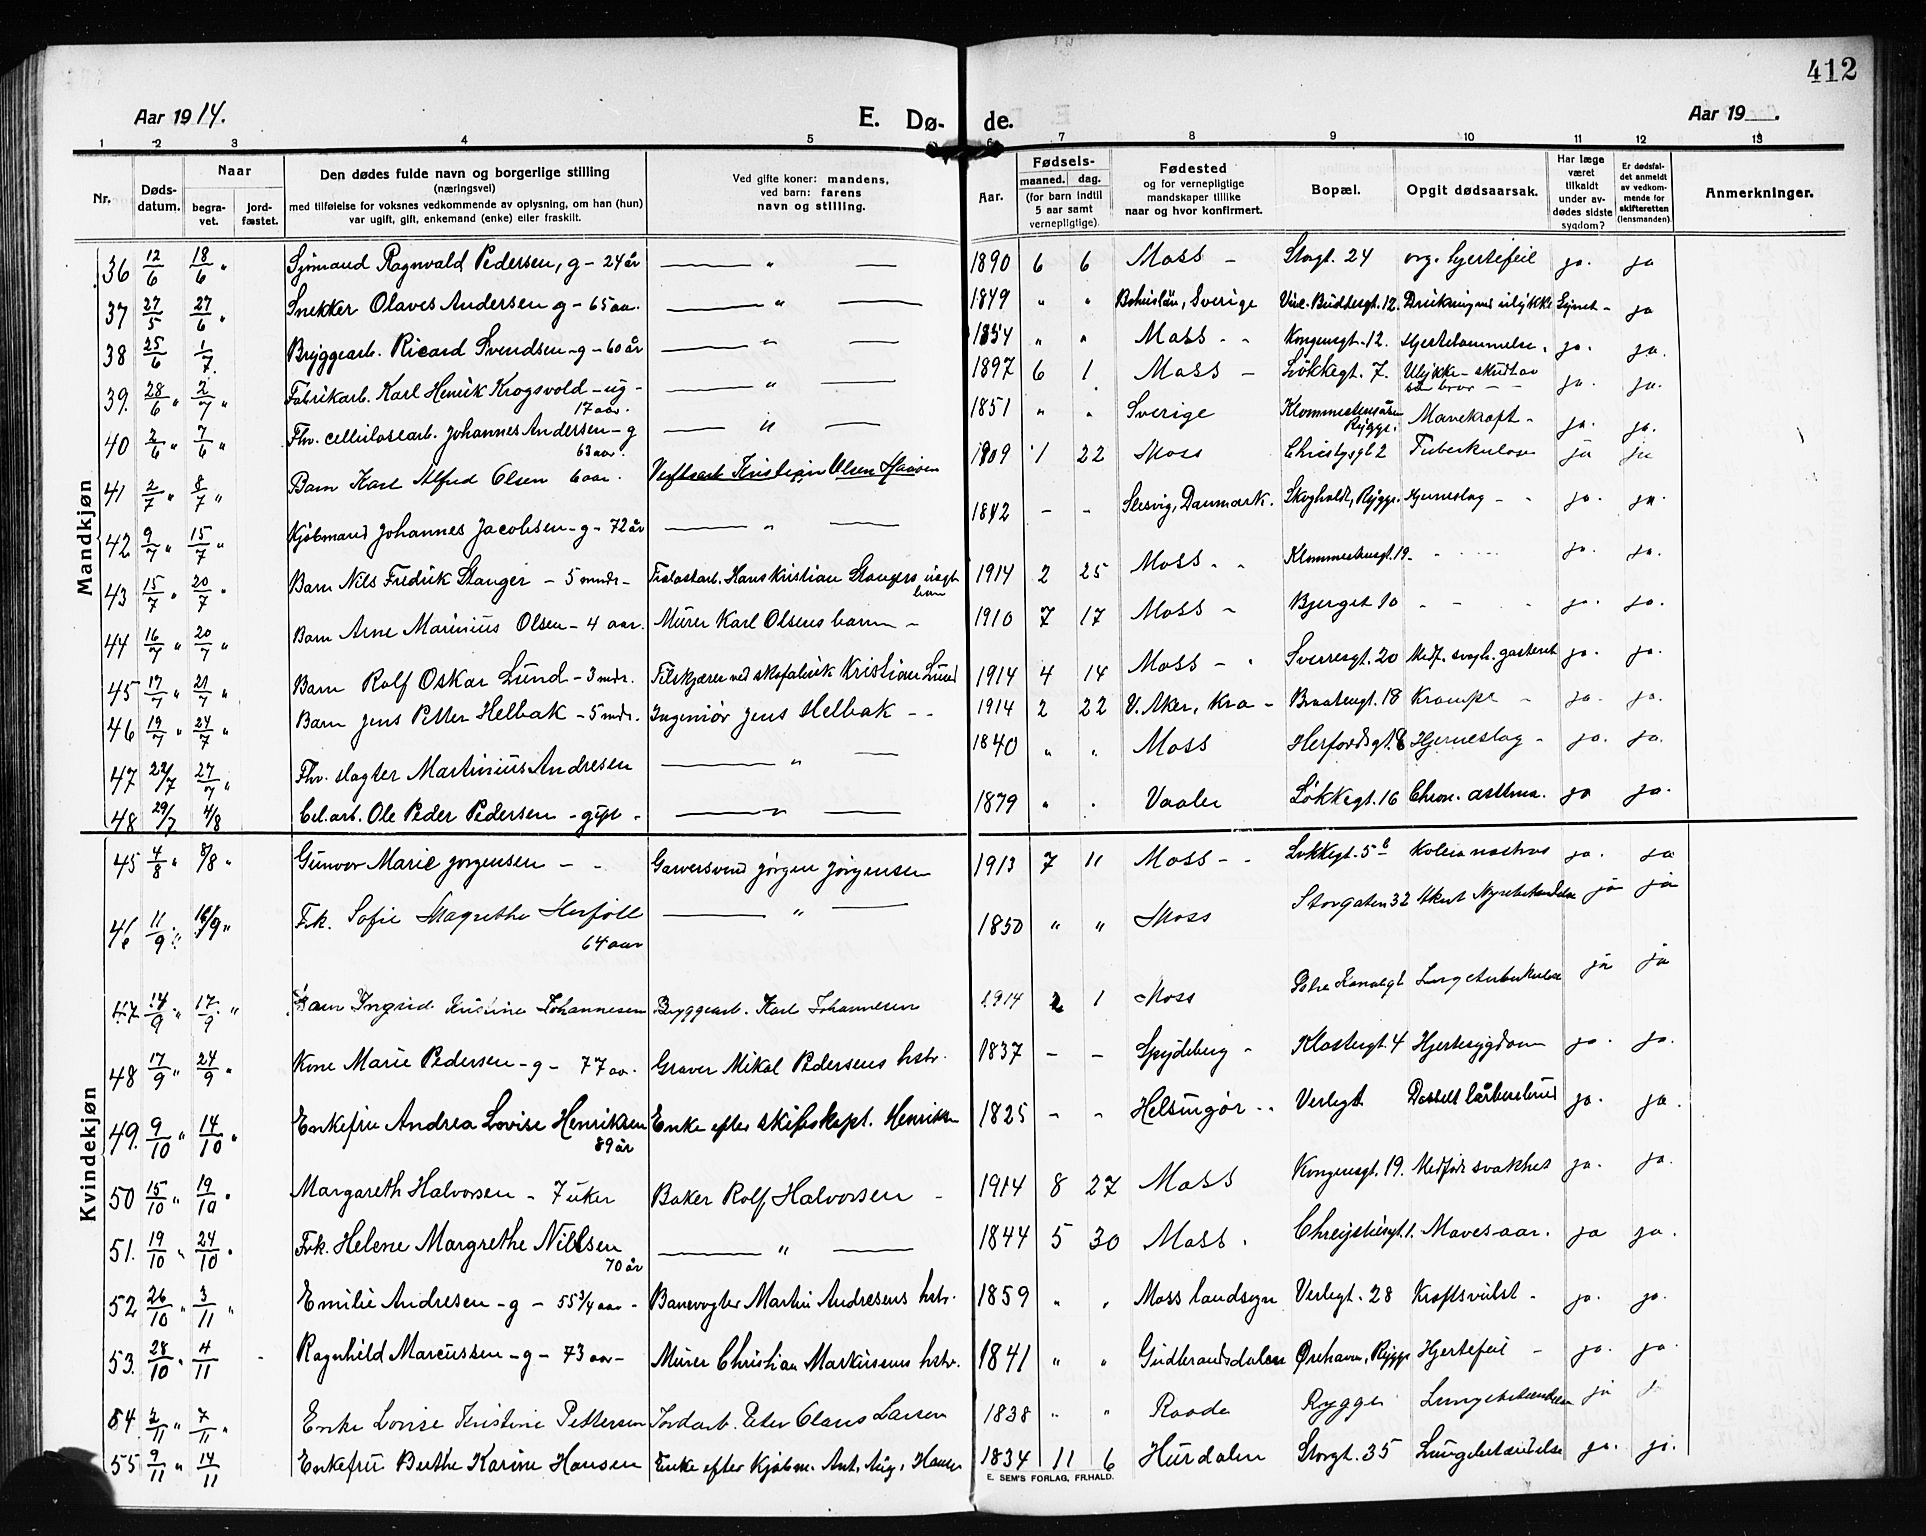 412
Aar 1914. E. Dø- de. Aar 19 .
1 2 3 4 5 6 7 8 9 10 11 12 13
Nr. Døds-datum. Naar begra-vet. jord-fæstet. Den dødes fulde navn og borgerlige stilling (næringsvei) med tilføielse for voksnes vedkommende av oplysning, om han (hun) var ugift, gift, enkemand (enke) eller fraskilt. Ved gifte koner: mandens, ved barn: farens navn og stilling. Aar. Fødsels- maaned. dag. (for barn indtil 5 aar samt vernepligtige). Fødested og for vernepligtige mandskaper tillike naar og hvor konfirmert. Bopæl. Opgit dødsaarsak. Har læge været tilkaldt under av-dødes sidste sygdom? Er dødsfal-det anmeldt av vedkom-mende for skifteretten (lensmanden) Anmerkninger.
Mandkjøn
36 12/6 18/6 " Sjømand Ragnvald Pedersen, g - 24 år — " — 1890 6 6 Moss - Storgt. 24 org. hjertefeil ja. ja
37 27/5 27/6 " Snekker Olaves Andersen g - 65 aa. — " — 1849 " " Bohuslän, Sverige 12. Drukningsulykke - ja
38 25/6 1/7. Bryggearb. Ricard Svendsen - g - 60 år — " — 1854 " " Moss - - Kongensgt. 12. Hjertelammelse. ja. ja.
39. 28/6 " 2/7 " Fabrikarb. Karl Henrik Krogsvold - ug - 17 aar. — " — 1897 6 1 Moss - Løkkegt. 7. Ulykke - skudt av sin bror - - ja. ja.
40 2/6 " 7/6 " Fhv. cellulosearb. Johannes Andersen - g 63 aar. — " — 1851 " " Sverige Rygge. Mavekræft - ja. ja.
41 2/7 " 8/7 " Barn Karl Alfred Olsen 6 aar. Verftsarb Kristian Olsen 1909 1 22 Moss 2 Tuberkulose ja ja
42 9/7 " 15/7 " Kjøbmand Johannes Jacobsen - g - 72 år — " — 1842 - - Slesvig, Danmark. Skogholdt, Rygge. Hjerneslag - - ja. ja.
43 15/7 " 20/7 " Barn Nils Fredrik Stanger - 5 mndr - Hans Kristian Stangers 1914 2 25 Moss - - 19 - - ja. ja.
44 16/7 " 20/7 " Barn Arne Marinius Olsen - 4 aar. Murer Karl Olsens barn - 1910 7 17 Moss - Bjerget 10 - - - ja. ja.
45 17/7 " 21/7 " Barn Rolf Oskar Lund - 3 mdr. Tilskjærer ved skofabrik Kristian Lund 1914 4 14 Moss - - Sverresgt. 20 Medf. svagh. ja. ja.
46 19/7 " 24/7 " Barn Jens Petter Helbak - 5 mdr. Ingeniør Jens Helbak - - 1914 2 22 V. Aker, Kra - Braatengt. 18 Krampe - ja. ja.
47 22/7 27/7 " Fhv. slagter Martinius Andresen — " — 1840 " " Moss Herfordsgt. 8 Hjerneslag - ja. ja.
48 29/7 4/8 Cel. arb. Ole Peder Pedersen - gift - — " — 1879 " . Vaaler Løkkegt. 16 Chron. asthma. ja ja.
Kvindekjøn
45 4/8 " 8/8 " Gunvor Marie Jørgensen - - Garversvend Jørgen Jørgensen 1913 7 11 Moss - - Løkkegt. 5 b Kolera nostras ja. ja
46 11/9 " 16/9 " Frk. Sofie Magrethe Herføll 64 aar — " — 1850 " " Moss Storgaten 32 Akut Nyrebetændelse ja ja
47 14/9 " 17/9 " Barn Ingrid Kristine Johannesen Bryggearb. Karl Johannesen 1914 2 1 Moss Østre Kanalgt Lungetuberkulose ja ja
48 17/9 " 24/9 " Kone Marie Pedersen - g - 77 aa. Graver Mikal Pedersens hstr. 1837 - - Spydeberg - Klostergt. 4 Hjertesygdom ja. ja.
49. 9/10 " 14/10 " Enkefru Andrea Lovise Henriksen 89 år Enke efter skibskapt. Henriksen 1825 - - Helsingør - - Verlegt lårbensbrud ja. ja.
50 15/10 " 19/10 " Margareth Halvorsen - 7 uker Baker Rolf Halvorsen - 1914 8 27 Moss Kongensgt. 19. Medfødt svakhet ja. ja.
51. 19/10 " 24/10 " Frk. Helene Margrethe Nilsen 70 år — " — 1844 5 30 Moss. 1. Mavesaar. ja ja.
52 26/10 " 3/11 " Emilie Andresen - g - 55 3/4 aar - Banevogter Martin Andresens hstr. 1859 " " Moss landsogn Verlegt. 28 Kræftsvulst - ja. ja.
53. 28/10 " 4/11 Ragnhild Marcussen - g - 73 aar - Murer Christian Markussens hstr. 1841 " " Gudbrandsdalen Ørehavn, Rygge Hjertefeil - ja. ja.
54. 2/11 " 7/11 " Enke Lovise Kristine Pettersen Jordarb. Peter Olaus Larsen 1838 " " Raade Rygge Lungebetændelse ja
55 9/11 " 14/11 Enkefru Berthe Karine Hansen Enke efter Kjøbm. Ant. Aug. Hansen 1834 11 6 Hurdalen Storgt. 35 Lungebetændelse ja. ja.
E. SEM'S FORLAG, FR.HALD.